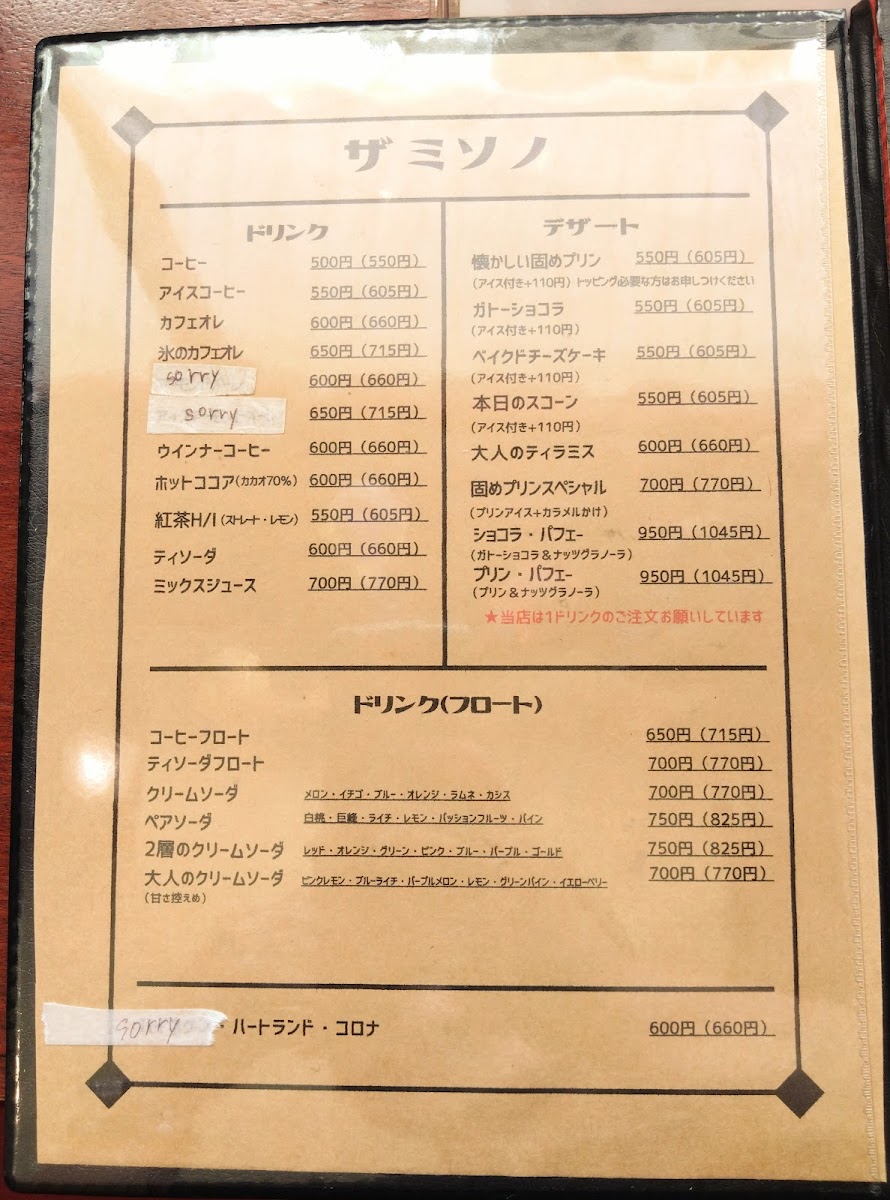 ザ ミソノ
ドリンク
コーヒー 500円（550円）
アイスコーヒー 550円（605円）
カフェオレ 600円（660円）
氷のカフェオレ 650円（715円）
sorry 600円（660円）
sorry 650円（715円）
ウインナーコーヒー 600円（660円）
ホットココア(カカオ70%) 600円（660円）
紅茶H/I（ストレート・レモン） 550円（605円）
ティソーダ 600円（660円）
ミックスジュース 700円（770円）
デザート
懐かしい固めプリン 550円（605円）
（アイス付き+110円）トッピング必要な方はお申しつけください
ガトーショコラ 550円（605円）
（アイス付き+110円）
ベイクドチーズケーキ 550円（605円）
（アイス付き+110円）
本日のスコーン 550円（605円）
（アイス付き+110円）
大人のティラミス 600円（660円）
固めプリンスペシャル 700円（770円）
（プリンアイス+カラメルかけ）
ショコラ・パフェ- 950円（1045円）
（ガトーショコラ＆ナッツグラノーラ）
プリン・パフェ- 950円（1045円）
（プリン＆ナッツグラノーラ）
★当店は1ドリンクのご注文お願いしています
ドリンク(フロート)
コーヒーフロート 650円（715円）
ティソーダフロート 700円（770円）
クリームソーダ メロン・イチゴ・ブルー・オレンジ・ラムネ・カシス 700円（770円）
ペアソーダ 白桃・巨峰・ライチ・レモン・パッションフルーツ・パイン 750円（825円）
2層のクリームソーダ レッド・オレンジ・グリーン・ピンク・ブルー・パープル・ゴールド 750円（825円）
大人のクリームソーダ ピンクレモン・ブルーライチ・パープルメロン・レモン・グリーンパイン・イエローベリー 700円（770円）
（甘さ控えめ）
sorry ・ハートランド・コロナ 600円（660円）